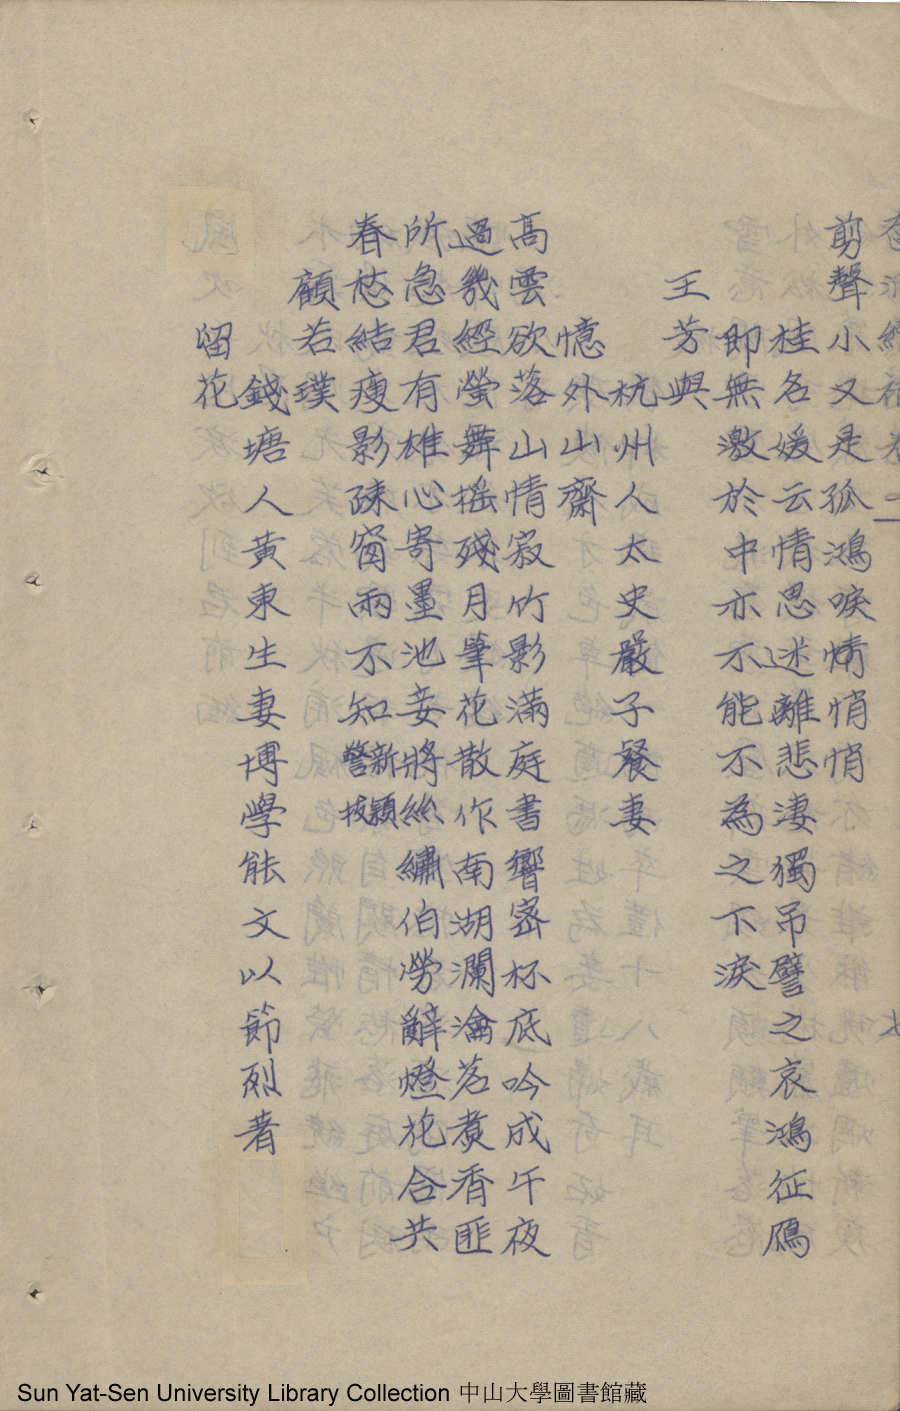 剪聲小又是孤鴻唳情悄悄
桂名媛云情思迷離悲淒獨吊譬之哀鴻征鴈
即無激於中亦不能不為之下淚
王芳與
杭州人太史嚴子餐妻
憶外山齋
高雲欲落山情寂竹影滿庭書響寄杯底吟成午夜
過幾經螢舞搖殘月筆花散作南湖瀾瀹茗煮香匪
所急君有雄心寄墨池妾將絲繡伯勞辭燈花合共
春愁結瘦影疎窗兩不知新穎警拔
顧若璞
錢塘人黃東生妻博學能文以節烈著
留花
Sun Yat-Sen University Library Collection 中山大學圖書館藏